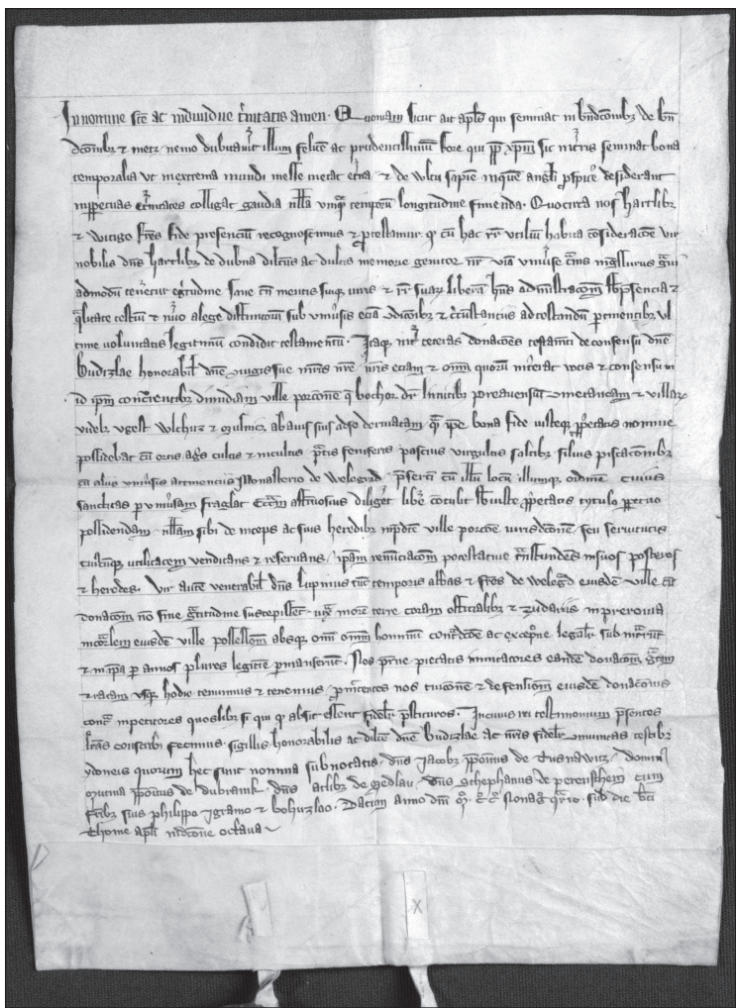 In nomine sce ac individue trinitatis amen. Quoniam sicut ait apls qui seminat in bndcoibz de bn
dcoibz & metet nemo dubitaverit illum felice ac prudentissimum fore qui ppt xpm sic in terris seminat bona
temporalia ut in extrema mundi messe metat etna & de vultu sapie in quem angli pspice desiderant
in ppetuas etnitates colligat gaudia nlla umq temporum longitudine finienda. Quocirca nos hartlibz
& Witigo frs fide presencium recognoscimus & ptestamur q cu hac rr utiliu habita consideracione vir
nobilis dns hartlibz de dubna dilectus ac dulcis memorie genitor nr viam universe carnis ingressurus
admodum tenetur egritudine sane tn mentis suiq iuris & rr suarum liberam hns administracom sb psencia &
qlitate testium & nuo a lege distinctum sub universis ecia condicoibz & circumstanciis ad testandum pertinentibz ul
time voluntatis legitimum condidit testamentum. Itaq inter ceteras donacoes testamti de consensu dne
Budizlae honorabil dne iugisque matris nre nris eciam & omni quorum intererat votis & consensu in
id ipm concurrentibz dimidiam ville porcone q bochor dr
videlz ugest Wlchiz & a suis ad se derivatam qm ipe bona fide iusteq ppetatis nomine
possidebat cu ortis agris cultis & incultis pratis feniseciis pascuis virgultis salicibz silvis piscacoibz
cu aliis universis attinenciis Monasterio de Welegrad psertim cum illu locu illumq ordine cuius
sanctitas p universam fraglat ecciam affectuosius diligeret libe contulit sb iuste ppetatis tytulo ppetuo
possidendam nllam sibi de inceps ac suis heredibz in pdte ville porcoe iurisdicone seu servitutis
cuiuscuq utilitatem vendicans & reservans, ipam renunciacom potestative transfundens in suos posteros
& heredes. Vir autem venerabil dns lupinus tuc temporis abbas & fres de Welegrad eiusde ville
donacom no sine gratitudine suscepisset iuxta more terre coram officialibz & zudariis in prerovia
in corlem eiusdem ville possessom absq omi omniu hominum contdicoe ac excepcoe legalr sub intrarunt
& in ipa p annos plures legitime permanserunt. Nos patrne pietatis imitatores eande donacom gratam
& ratam usq hodie tenuimus & tenemus, pmittentes nos tuicone & defensiom eiusdem donacois
contra inpetitores quoslibz si qui q absit essent fidelr pstituros. In cuius rei testimonium psentes
lras conscribi fecimus. sigillis honorabilis ac dilce dne Budizlae ac nris fidelr munitas testibz
ydoneis quorum hec sunt nomina subnotatis. dns Jacobz pposius de Dominus
de dubrauik. dns artlibz de medlau. Dns Schephanus de perensthem cum
fribz suis philippo ygramo & bohuzlao. Datum anno dni M CC C Nonag qrto. sub die bti
Thome apli indicone octava
X